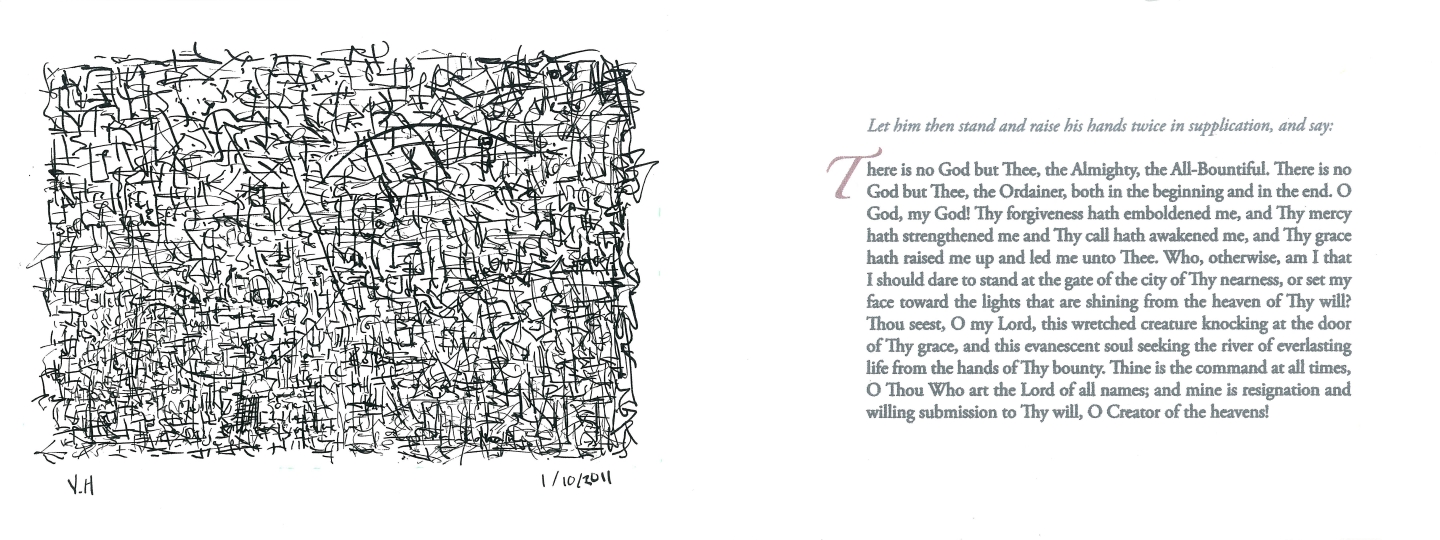 V.H
1/10/2011
Let him then stand and raise his hands twice in supplication, and say:
There is no God but Thee, the Almighty, the All-Bountiful. There is no
God but Thee, the Ordainer, both in the beginning and in the end. O
God, my God! Thy forgiveness hath emboldened me, and Thy mercy
hath strengthened me and Thy call hath awakened me, and Thy grace
hath raised me up and led me unto Thee. Who, otherwise, am I that
I should dare to stand at the gate of the city of Thy nearness, or set my
face toward the lights that are shining from the heaven of Thy will?
Thou seest, O my Lord, this wretched creature knocking at the door
of Thy grace, and this evanescent soul seeking the river of everlasting
life from the hands of Thy bounty. Thine is the command at all times,
O Thou Who art the Lord of all names; and mine is resignation and
willing submission to Thy will, O Creator of the heavens!